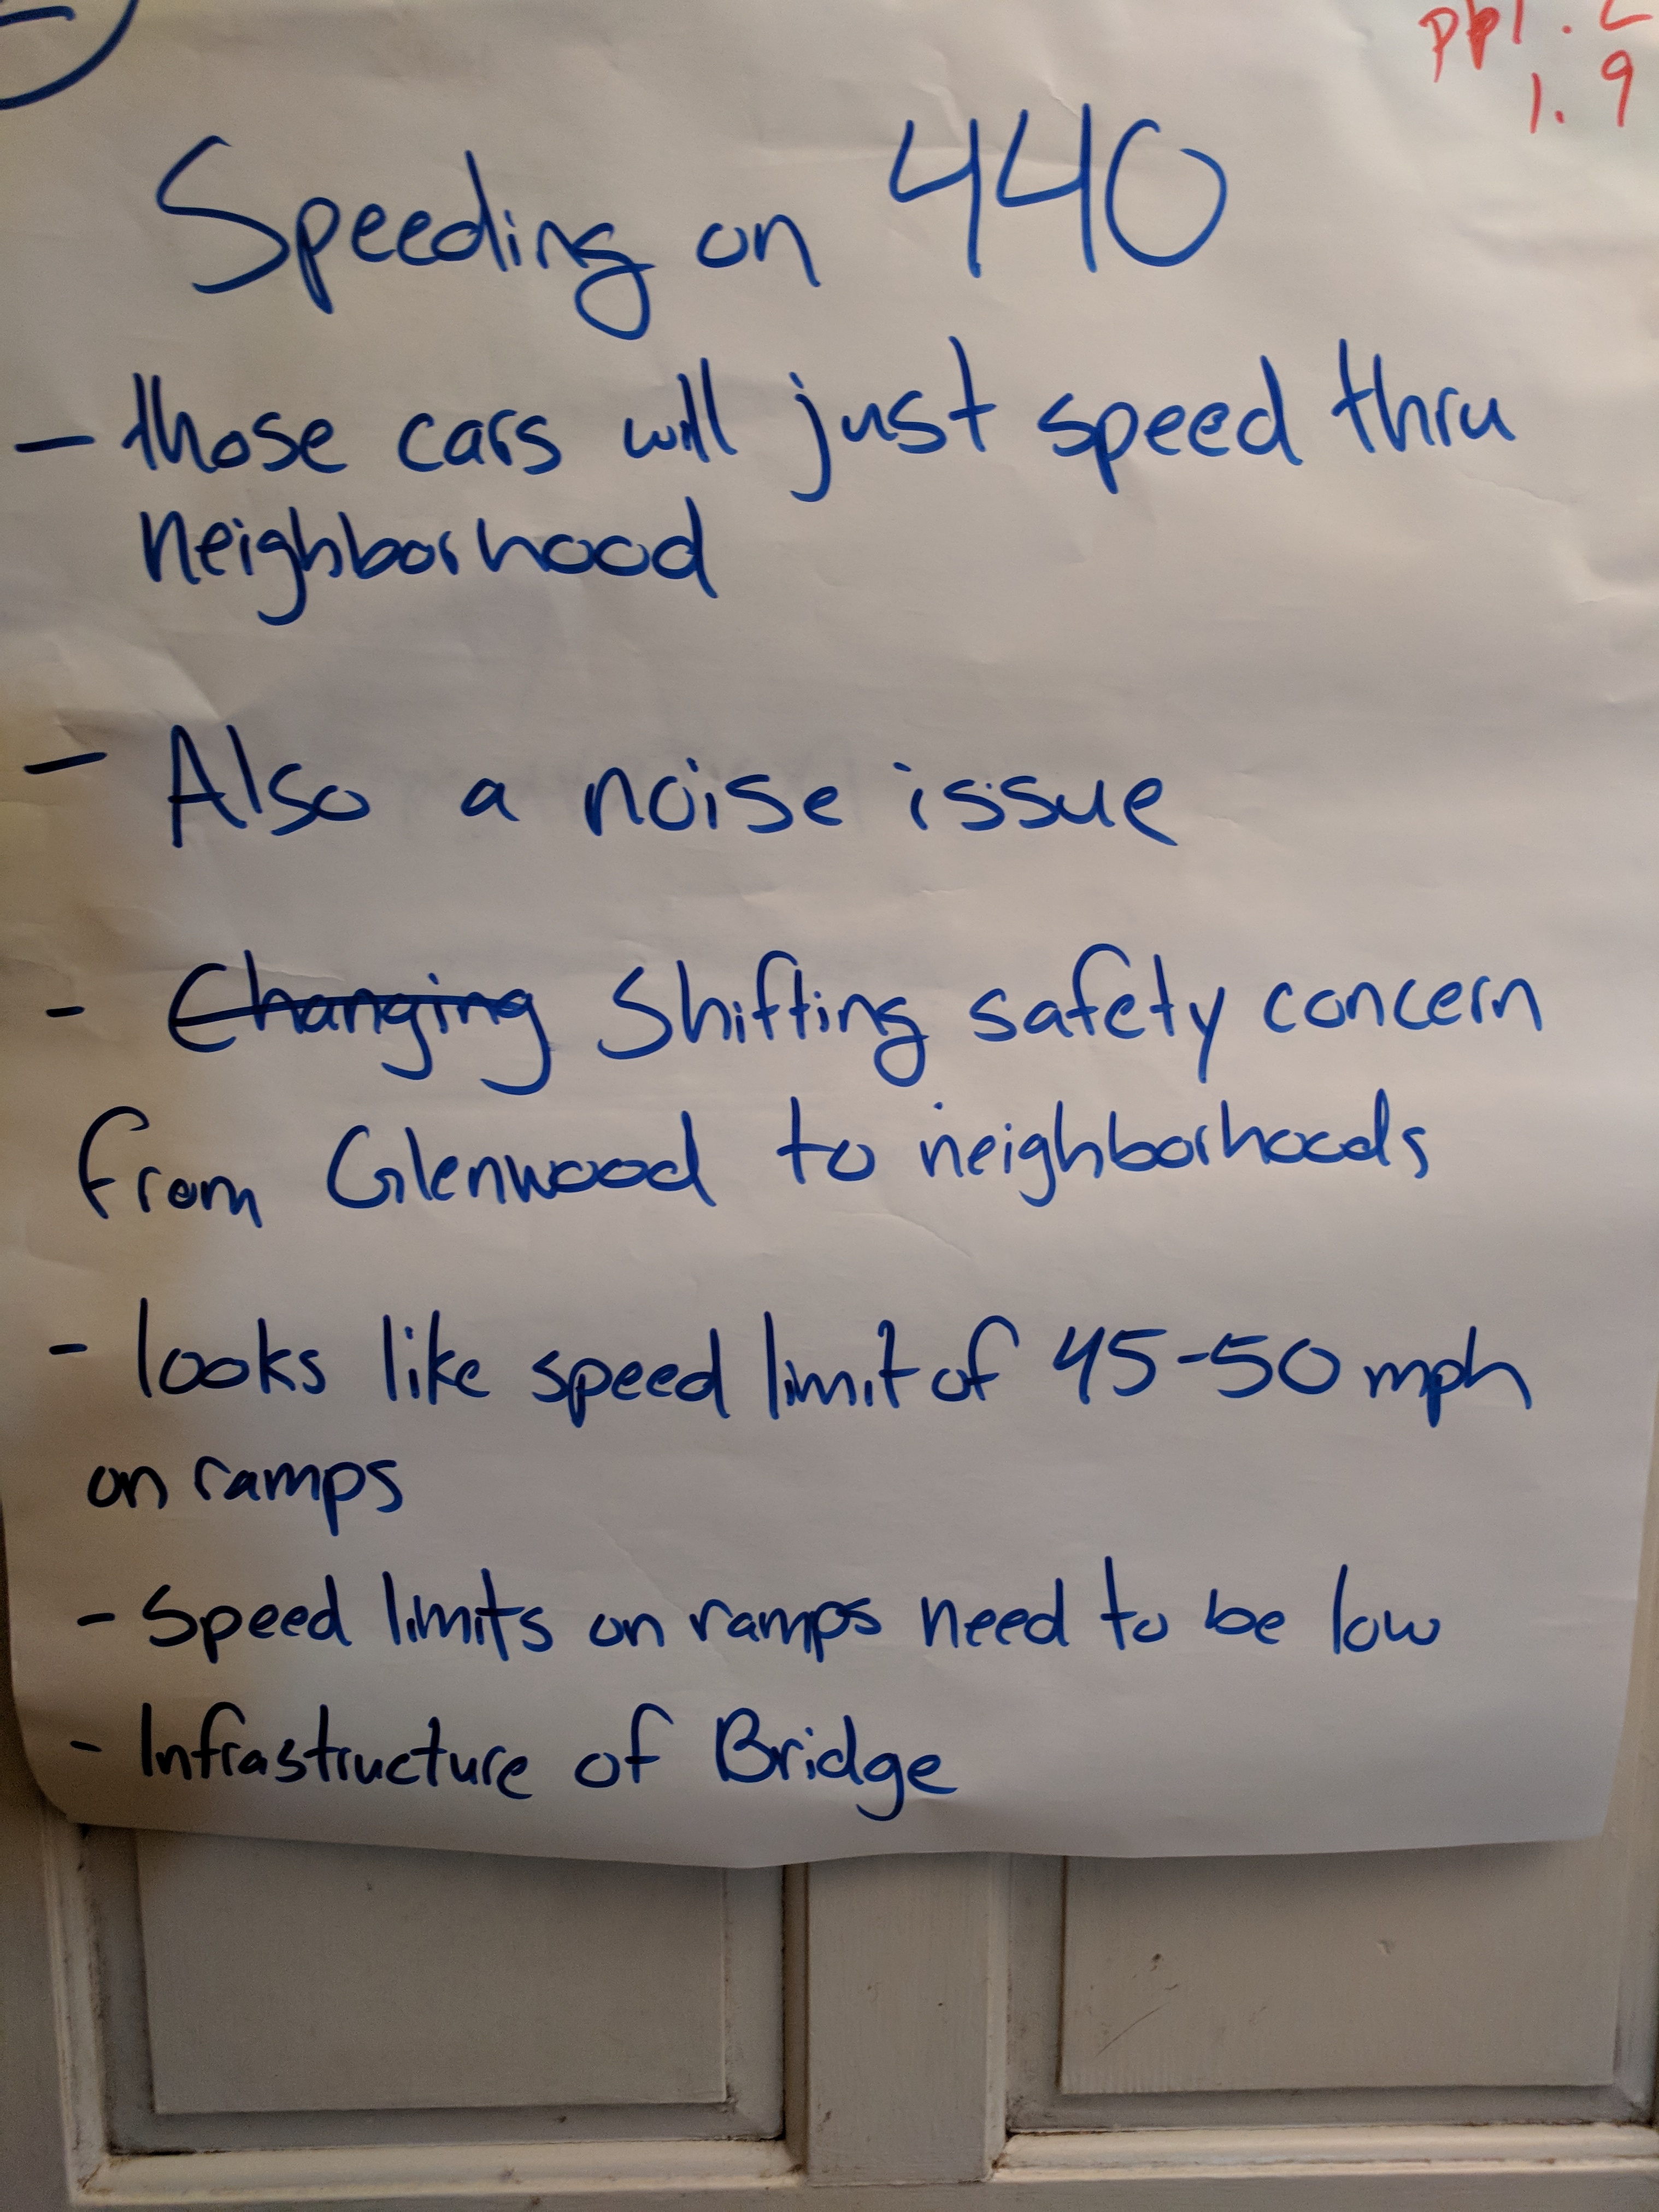 ppl.
1. 9
Speeding on 440
- those cars will just speed thru
neighborhood
- Also a noise issue
- Changing Shifting safety concern
from Glenwood to neighborhoods
- looks like speed limit of 45-50 mph
on ramps
- Speed limits on ramps need to be low
- Infrastructure of Bridge